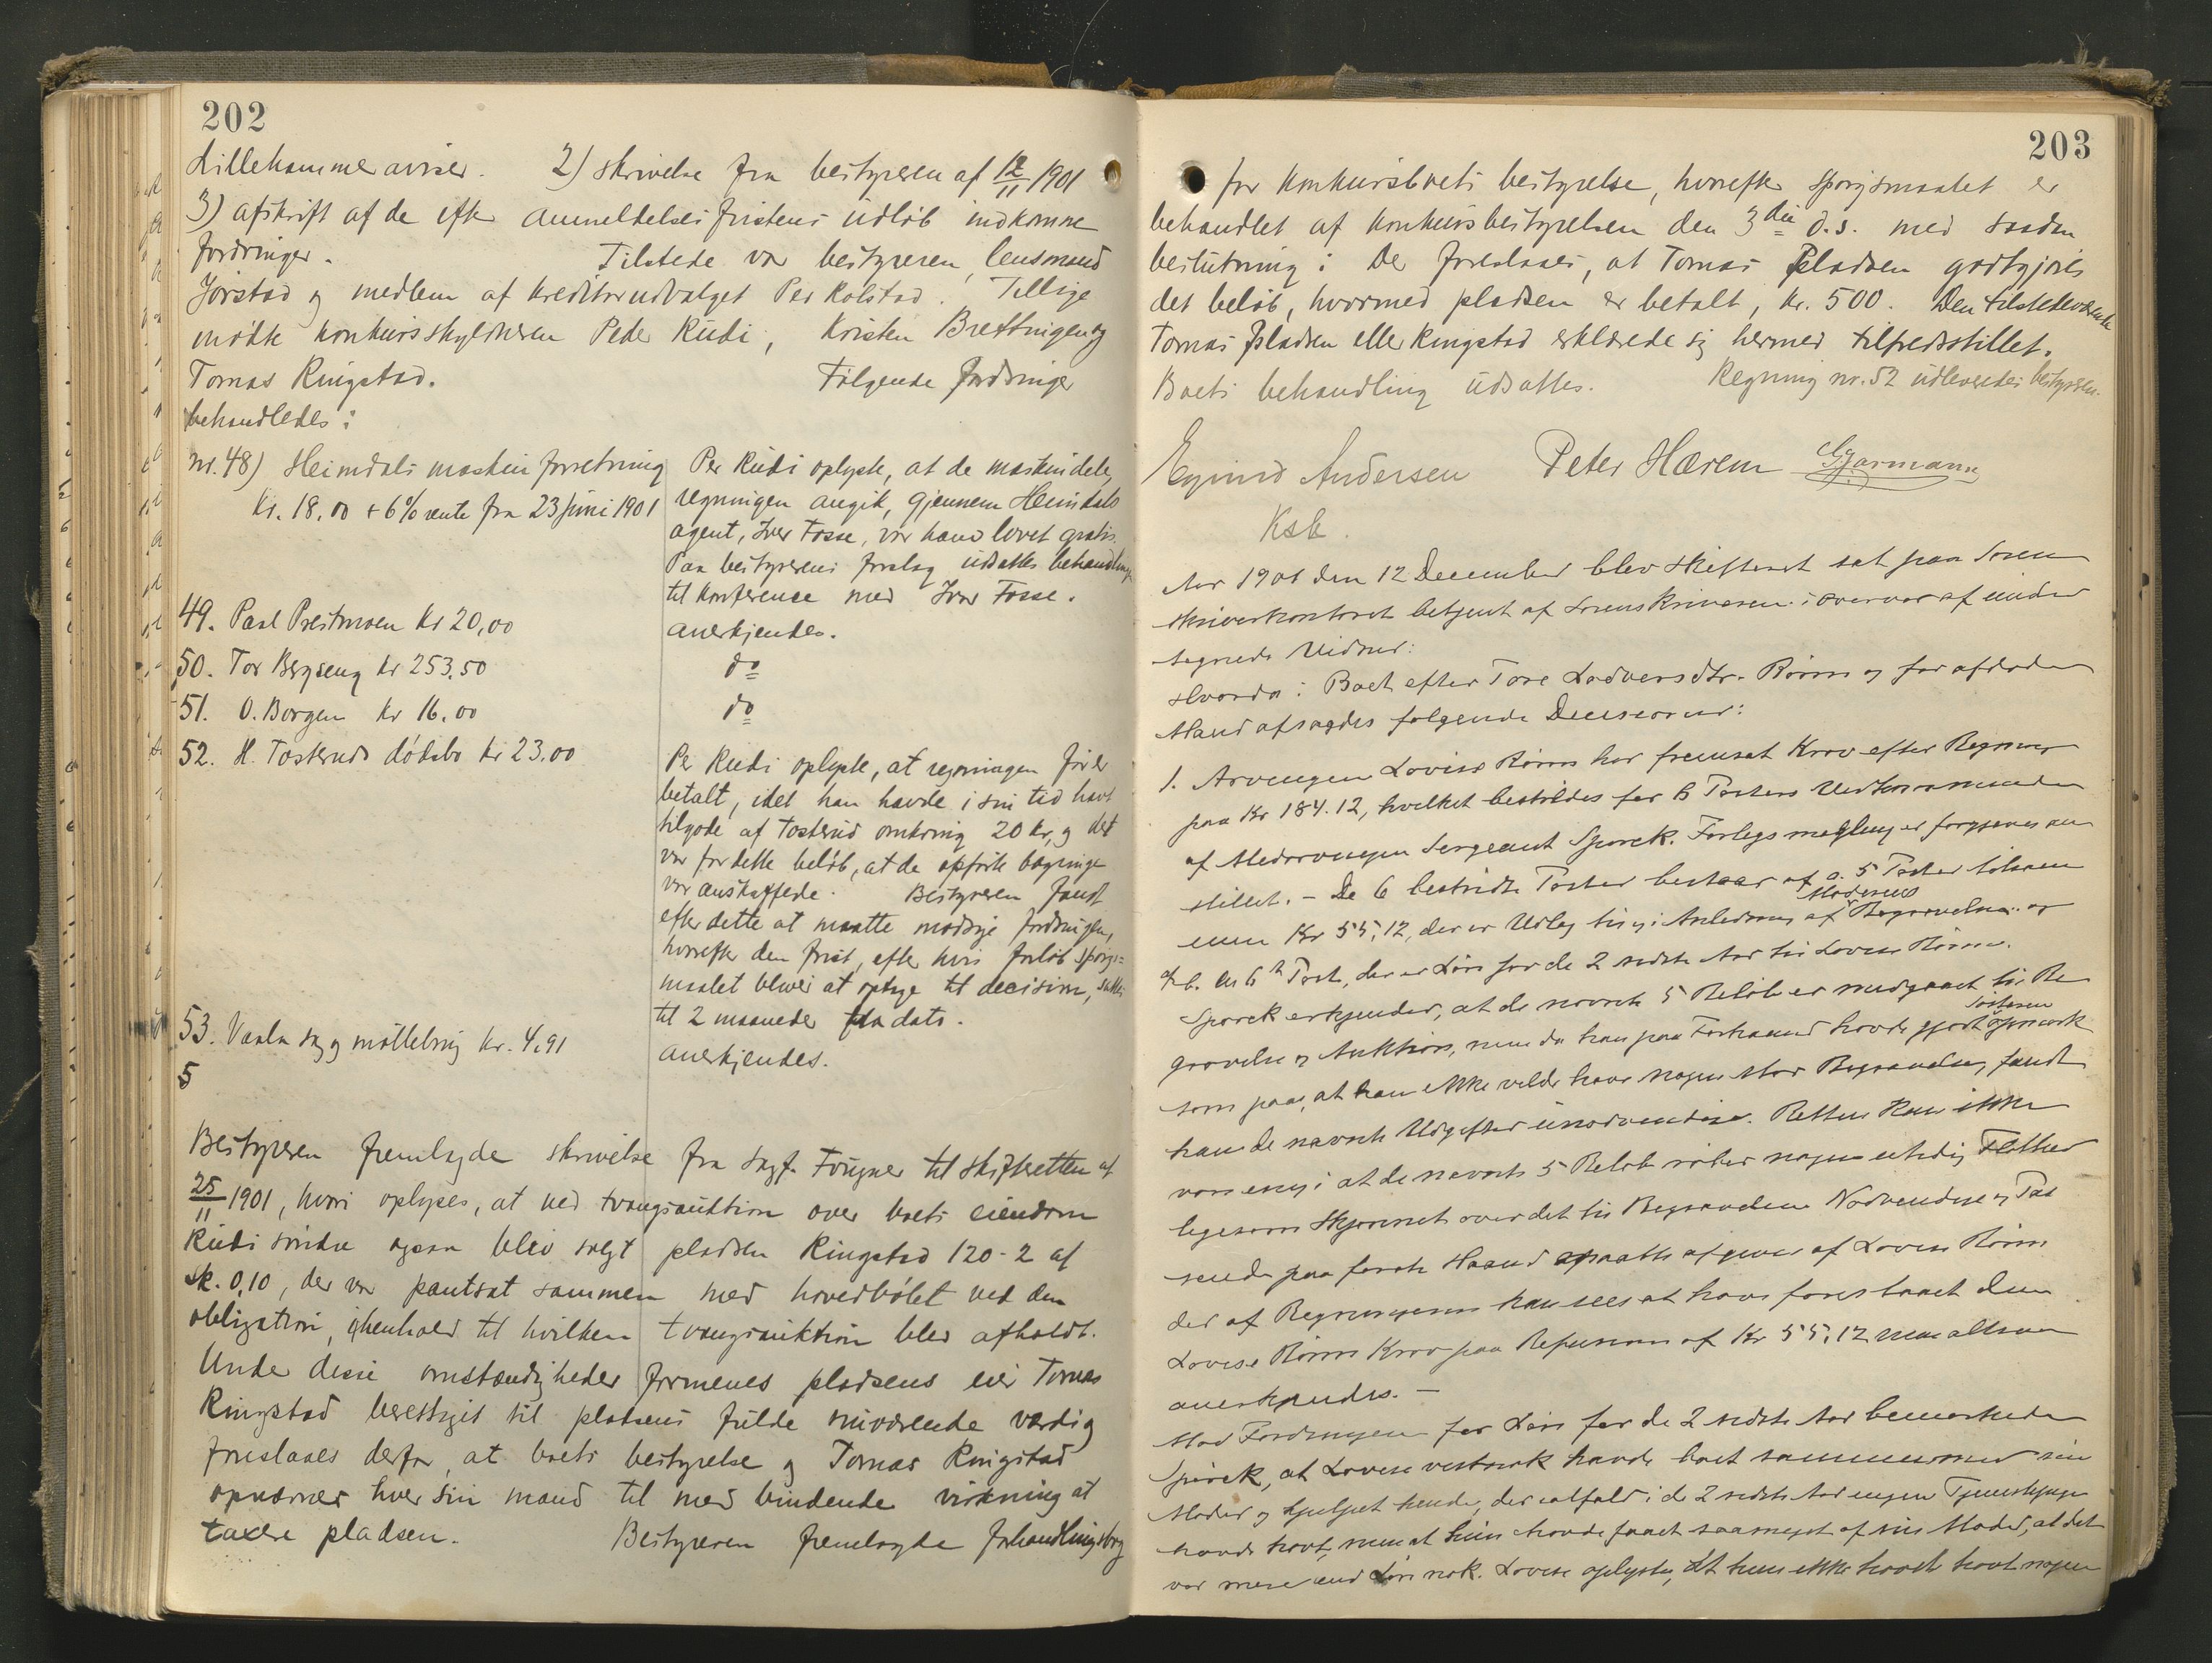 202
Lillehammer aviser. 2) skrivelse fra bestyreren af 12/11 1901
3) afskrift af de efter anmeldelsesfristens udløb indkomne
fordringer. Tilstede var bestyreren, lensmand
Jørstad og medlem af kreditorudvalget Per Kolstad. Tillige
mødte konkursskyldneren Peder Rudi, Kristen Brettingen og
Tomas Ringstad. Følgende fordringer
behandledes:
nr. 48) Heimdals maskinforretning
Kr. 18,00 + 6% rente fra 23 juni 1901
Per Rudi oplyste, at de maskindele,
regningen angik, gjennem Heimdals
agent, Iver Fosse, var ham lovet gratis.
Paa bestyrerens forslag udsattes behandlingen
til konference med Iver Fosse.
49. Paul Prestmoen kr 20,00
anerkjendes.
50. Tor Bergseng kr 253,50
do
51. O. Borgen kr 16,00
do
52. H. Tosteruds dødsbo kr 23,00
Per Rudi oplyste, at regningen før er
betalt, idet han havde i sin tid havt
tilgode af Tosterud omkring 20 kr, og det
var for dette beløb, at de opførte bøgninger
var anskaffede. Bestyreren fandt
efter dette at maatte modsige fordringen,
hvorefter den frist, efter hvis forløb spørgs=
maalet bliver at optage til decision, sattes
til 2 maaneder fra dato.
53. Vaala sag og møllebrug kr. 4,91
anerkjendes.
5
Bestyreren fremlagde skrivelse fra sagf. Fougner til skifteretten af
25/11 1901, hvori oplyses, at ved tvangsauktion over boets eiendom
Rudi søndre ogsaa blev solgt pladsen Ringstad 120-2 af
sk. 0,10, der var pantsat sammen med hovedbølet ved den
obligation, i henhold til hvilken tvangsauktion blev afholdt.
Under disse omstændigheder formenes pladsens eier Tomas
Ringstad berettiget til pladsens fulde nuværende værdi og
foreslaaes derfor, at boets bestyrelse og Tomas Ringstad
opnævner hver sin mand til med bindende virkning at
taxere pladsen. Bestyreren fremlagde forhandlingsbog
203
for konkursboets bestyrelse, hvorefter spørgsmaalet er
behandlet af konkursbestyrelsen den 3die d.s. med saadan
beslutning: Der foreslaaes, at Tomas Pladsen godtgjøres
det beløb, hvormed pladsen er betalt, kr. 500. Den tilstedeværende
Tomas Pladsen eller Ringstad erklærede sig hermed tilfredsstillet.
Boets behandling udsattes. Regning nr. 52 udleveredes bestyreren.
Eyvind Andersen Peter Hærem Gjarmann
Kst.
Aar 1901 den 12 December blev Skifteret sat paa Soren
skriverkontoret betjent af Sorenskriveren i Overvær af under
tegnede Vidner:
Hvorda: i Boet efter Tore Ladversdtr. Rønn og før afdøde
Mand afsagdes følgende Decisioner:
1. Arvingen Lovise Rønn har fremsat Krav efter Regning
paa Kr 184.12, hvilket bestrides for 6 Posters Vedkommende
af Medarvingen Sergeant Spørck. Forligsmægling er forgjæves an
stillet. – De 6 bestridte Poster bestaar af a. 5 Poster tilsam
men Kr 55,12, der er Udlæg til og i Anledning af Moderens Begravelse og
af b. en 6te Post, der er Løn for de 2 sidste Aar til Lovise Rønn.
Spørck erkjender, at de nævnte 5 Beløb er medgaaet til Be
gravelse og Auktion, men da han paa Forhaand havde gjort Søsteren opmærk
som paa, at han ikke vilde have nogen stor Begravelse, fandt
han de nævnte Udgifter unødvendige. Retten kan ikke
være enig i at de nævnte 5 Beløb røber nogen utidig Flothed
ligesom Skjønnet over det til Begravelsen Nødvendige og Pas
sende paa første Haand maatte afgives af Lovise Rønn
der af Regningerne kan sees at have forestaaet den.
Lovise Rønns Krav paa Refusion af Kr 55,12 maa altsaa
anerkjendes. –
Mod Fordringen for Løn for de 2 sidste Aar bemærkede
Spørck, at Lovise vistnok havde boet sammen med sin
Moder og hjulpet hende, der ialfald i de 2 sidste Aar ingen Tjenestepige
havde havt, men at hun havde faaet saameget af sin Moder, at det
var mere end Løn nok. Lovise oplyste, at hun ikke havde havt nogen